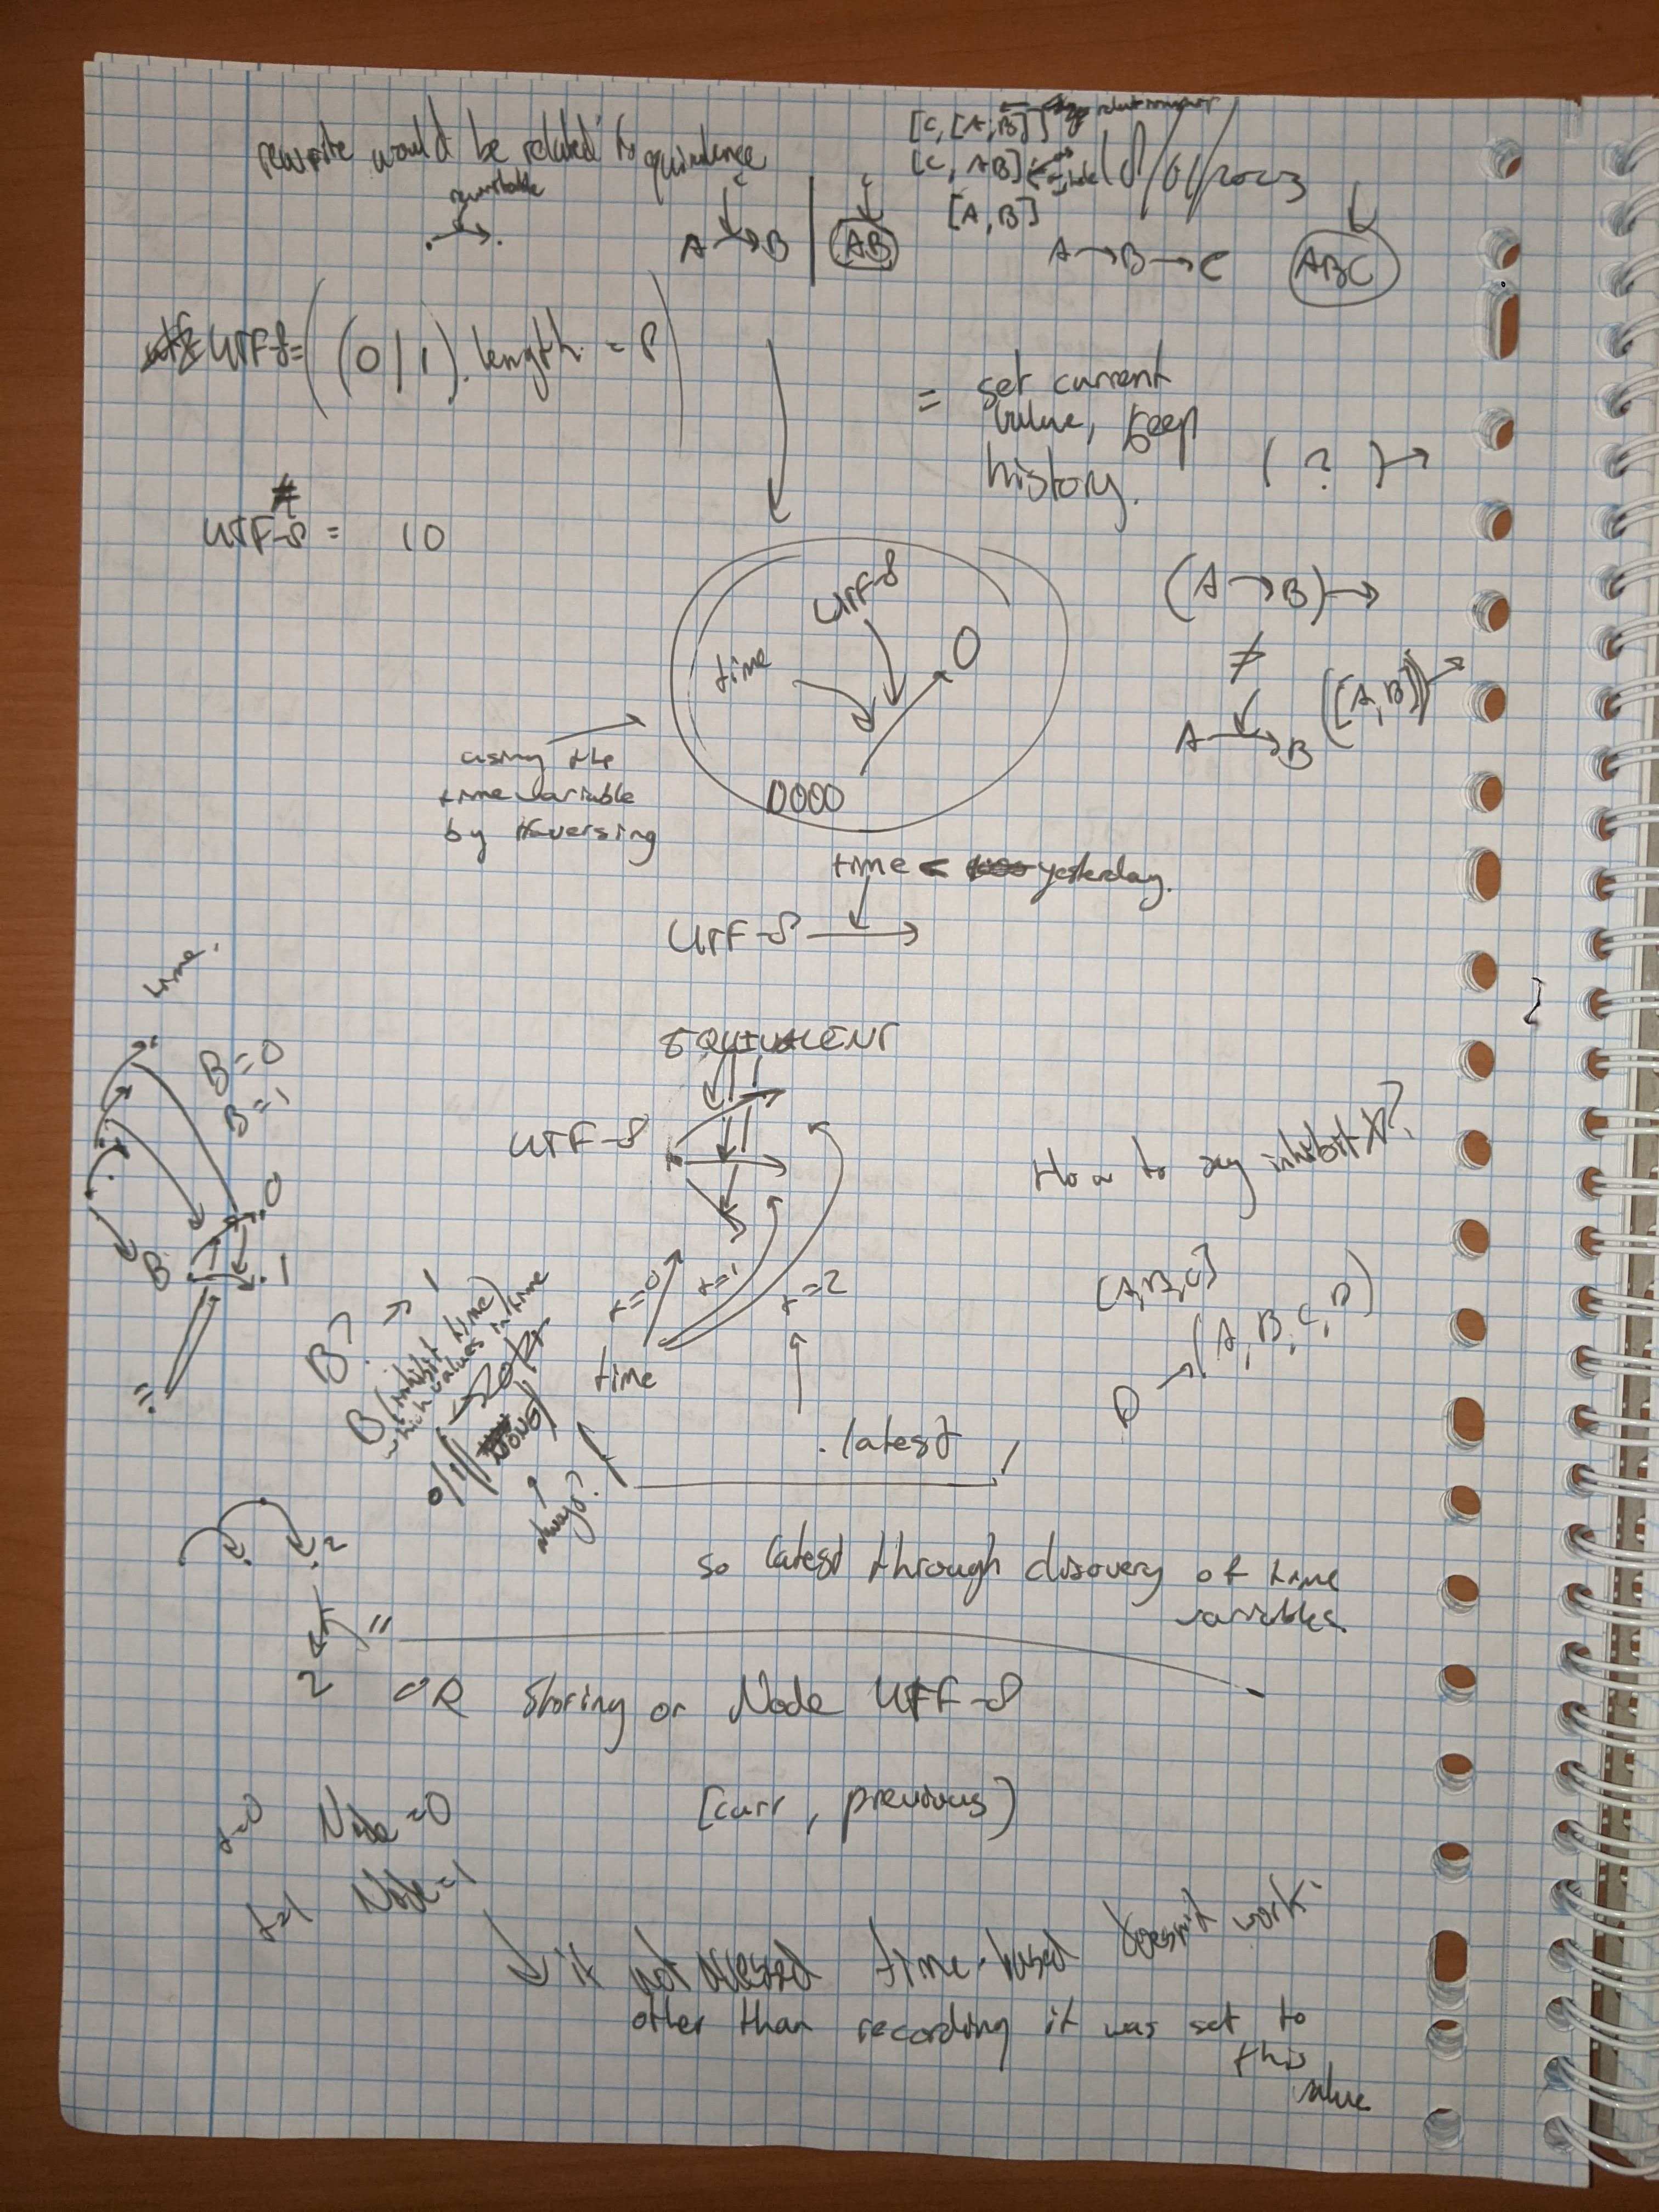 rewrite would be related to equivalence
[C, [A, B]]
[C, AB]
[A, B]
A → B | AB
A → B → C
ABC
UTF-8 = ((0/1).length = 8)
= set current
value, keep
history.
( ? ) →
UTF-8 = 10
UTF-8
time
0
(A → B) →
≠
A → B ([A, B]) →
using the
time variable
by traversing
time < yesterday.
UTF-8 →
time.
B=0
B=1
EQUIVALENT
UTF-8
How to say inhibit X?
0
B 1
=
t=0
t=1
t=2
time
B? → 1
B (inhibit time)
which values in time
always?
[A, B, C]
(A, B, C, D)
D
.latest
so latest through discovery of time
variables.
2
=
2
OR Storing on Node UTF-8
[curr, previous)
t=0 Node=0
t=1 Node=1
↓ if not accessed time-based doesn't work.
other than recording it was set to
this
value